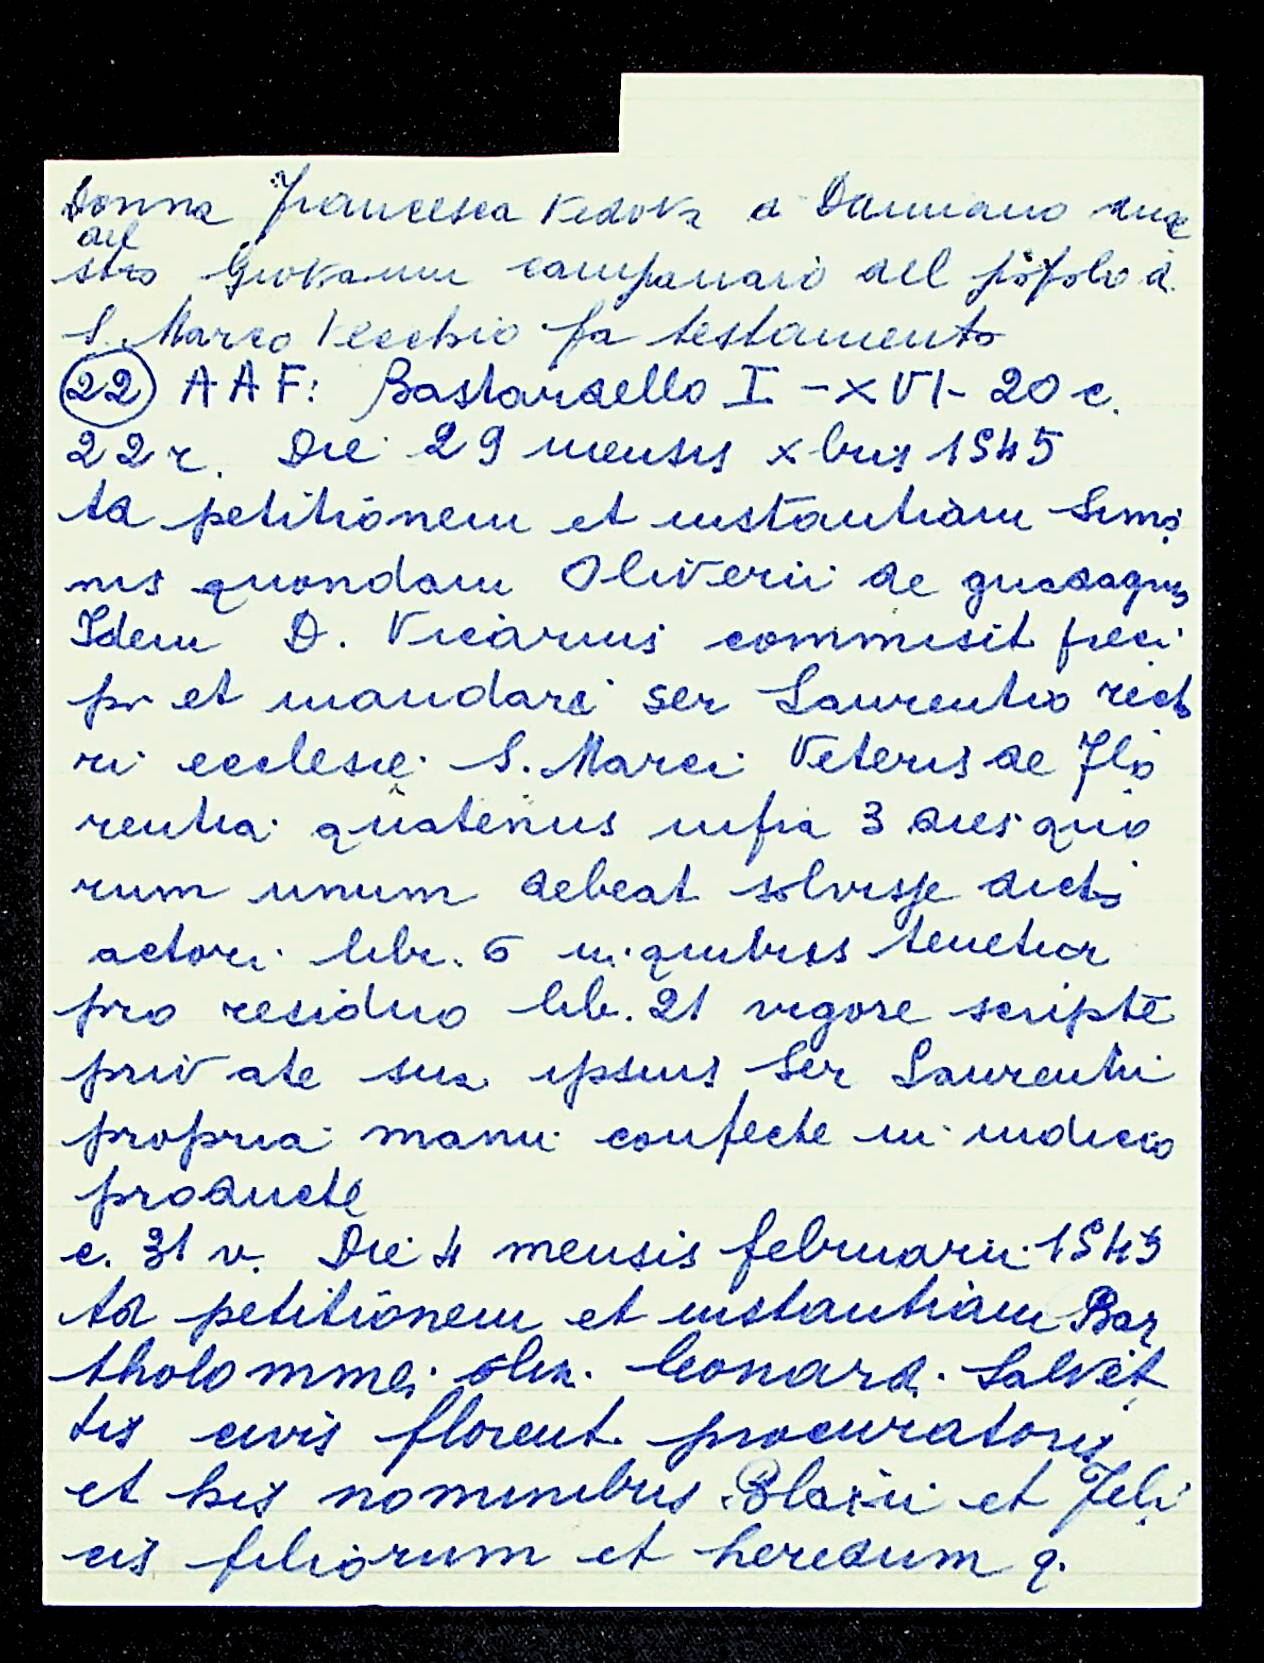 Donna Francesca vedova di Damiano mae
del
stro Giovanni campanaio del popolo di
S. Marco Vecchio fa testamento
(22) AAF: Bastardello I – XVI – 20 c.
22 r. Die 29 mensis xbris 1545
Ad petitionem et instantiam Simo
nis quondam Oliverii de guadagnis
Idem D. Vicarius commisit preci
pi et mandari ser Laurentio recto
ri ecclesie S. Marci Veteris de Flo
rentia quatenus infra 3 dies quo
rum unum debeat solvisse dicto
actori libr. 6 in quibus tenetur
pro residuo lib. 21 vigore scripte
private sua ipsius Ser Laurentii
propria manu confecte in iudicio
producte
c. 31 v. Die 4 mensis februarii 1545
Ad petitionem et instantiam Bar
tholommei olim Leonardi Salvet
tis civis florent. procuratoris
et his nominibus Blasii et Feli
cis filiorum et heredum q.